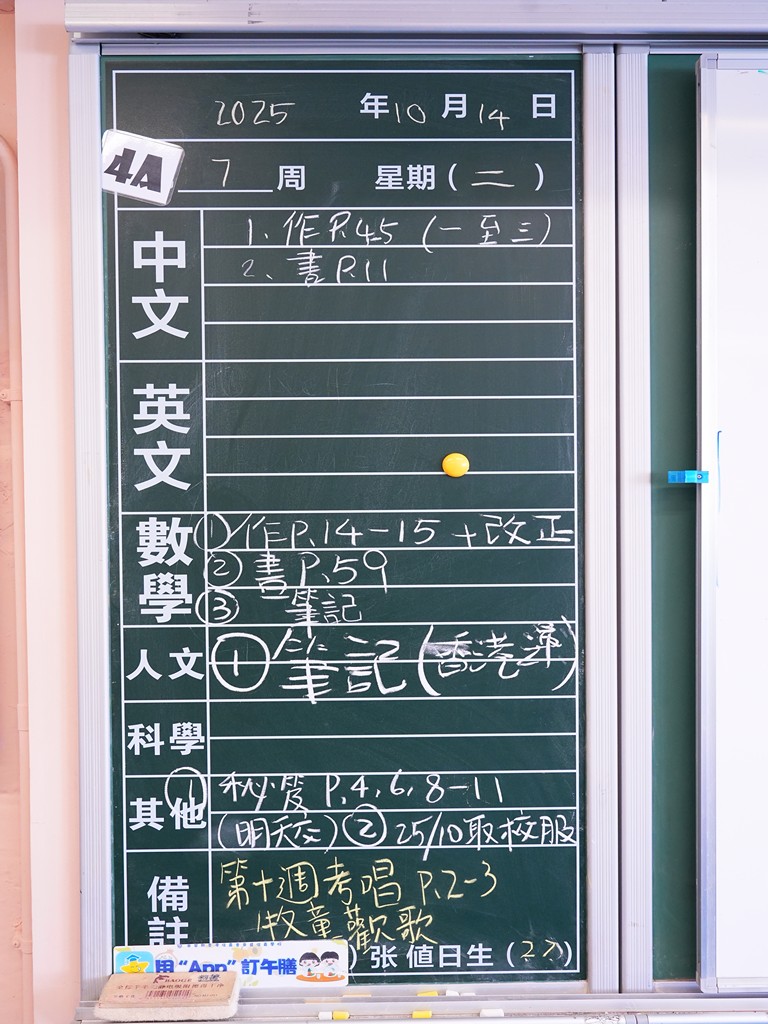 2025 年10月14日
4A
7 周 星期(二)
中文
1、作P.45 (一至三)
2、書P.11
英文
數學
①作P.14-15 +改正
②書P.59
③ 筆記
人文
①筆記(香港
科學
其他
① P.4,6,8-11
(明天交) ② 25/10取校服
備註
第十週考唱 P.2-3
牧童歡歌
) 张 值日生( )
用"App"訂午膳